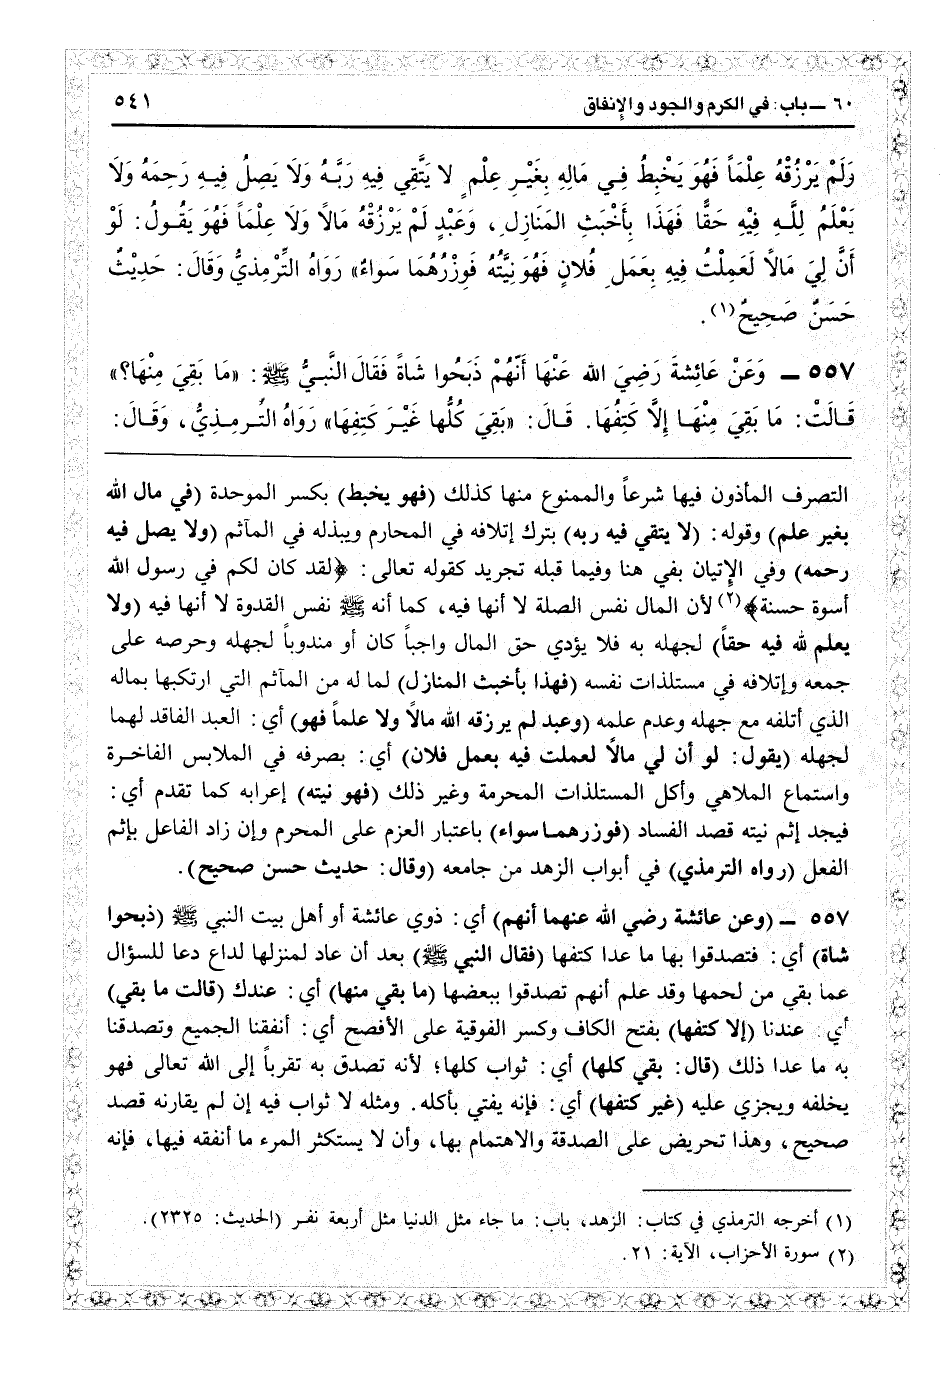 ٦٠ ـ باب: في الكرم والجود والإنفاق ٥٤١
وَلَمْ يَرْزُقْهُ عِلْمَاً فَهُوَ يَخْبِطُ فِـي مَالِهِ بِغَيْرِ عِلْمٍ لا يَتَّقِي فِيهِ رَبَّهُ وَلَا يَصِلُ فِيهِ رَحِمَهُ وَلَا
يَعْلَمُ لِلَّـهِ فِيْهِ حَقًّا فَهَذَا بِأَخْبَثِ المَنَازِلِ، وَعَبْدٍ لَمْ يَرْزُقْهُ مَالًا وَلَا عِلْمَاً فَهُوَ يَقُـولُ: لَوْ
أَنَّ لِيَ مَالًا لَعَمِلْتُ فِيهِ بِعَمَلِ فُلانٍ فَهُوَ نِيَّتُهُ فَوِزْرُهُمَا سَواءٌ» رَوَاهُ التِّرْمِذِيُّ وَقَالَ: حَدِيْثٌ
حَسَنٌ صَحِيحٌ(١).
٥٥٧ ـ وَعَنْ عَائِشةَ رَضِيَ الله عَنْهَا أَنَّهُمْ ذَبَحُوا شَاةً فَقَالَ النَّبِـيُّ ﷺ: «مَا بَقِيَ مِنْهَا؟»
قَـالَتْ: مَا بَقِيَ مِنْهَـا إلَّا كَتِفُهَا. قَـالَ: «بَقِيَ كُلُّها غَيْـرَ كَتِفِهَا» رَوَاهُ التُـرمِـذِيُّ، وَقَـالَ:
التصرف المأذون فيها شرعاً والممنوع منها كذلك (فهو يخبط) بكسر الموحدة (في مال الله
بغير علم) وقوله: (لا يتقي فيه ربه) بترك إتلافه في المحارم ويبذله في المآثم (ولا يصل فيه
رحمه) وفي الإتيان بفي هنا وفيما قبله تجريد كقوله تعالى: ﴿لقد كان لكم في رسول الله
أسوة حسنة﴾(٢) لأن المال نفس الصلة لا أنها فيه، كما أنه ﷺ نفس القدوة لا أنها فيه (ولا
يعلم لله فيه حقاً) لجهله به فلا يؤدي حق المال واجباً كان أو مندوباً لجهله وحرصه على
جمعه وإتلافه في مستلذات نفسه (فهذا بأخبث المنازل) لما له من المآثم التي ارتكبها بماله
الذي أتلفه مع جهله وعدم علمه (وعبد لم يرزقه الله مالًا ولا علماً فهو) أي: العبد الفاقد لهما
لجهله (يقول: لو أن لي مالًا لعملت فيه بعمل فلان) أي: بصرفه في الملابس الفاخرة
واستماع الملاهي وأكل المستلذات المحرمة وغير ذلك (فهو نيته) إعرابه كما تقدم أي:
فيجد إثم نيته قصد الفساد (فوزرهمـا سواء) باعتبار العزم على المحرم وإن زاد الفاعل بإثم
الفعل (رواه الترمذي) في أبواب الزهد من جامعه (وقال: حديث حسن صحيح).
٥٥٧ ـ (وعن عائشة رضي الله عنهما أنهم) أي: ذوي عائشة أو أهل بيت النبي ﷺ (ذبحوا
شاة) أي: فتصدقوا بها ما عدا كتفها (فقال النبي ﷺ) بعد أن عاد لمنزلها لداع دعا للسؤال
عما بقي من لحمها وقد علم أنهم تصدقوا ببعضها (ما بقي منها) أي: عندك (قالت ما بقي)
أي: عندنا (إلا كتفها) بفتح الكاف وكسر الفوقية على الأفصح أي: أنفقنا الجميع وتصدقنا
به ما عدا ذلك (قال: بقي كلها) أي: ثواب كلها؛ لأنه تصدق به تقرباً إلى الله تعالى فهو
يخلفه ويجزي عليه (غير كتفها) أي: فإنه يفتي بأكله. ومثله لا ثواب فيه إن لم يقارنه قصد
صحيح، وهذا تحريض على الصدقة والاهتمام بها، وأن لا يستكثر المرء ما أنفقه فيها، فإنه
(١) أخرجه الترمذي في كتاب: الزهد، باب: ما جاء مثل الدنيا مثل أربعة نفـر (الحديث: ٢٣٢٥).
(٢) سورة الأحزاب، الآية: ٢١.